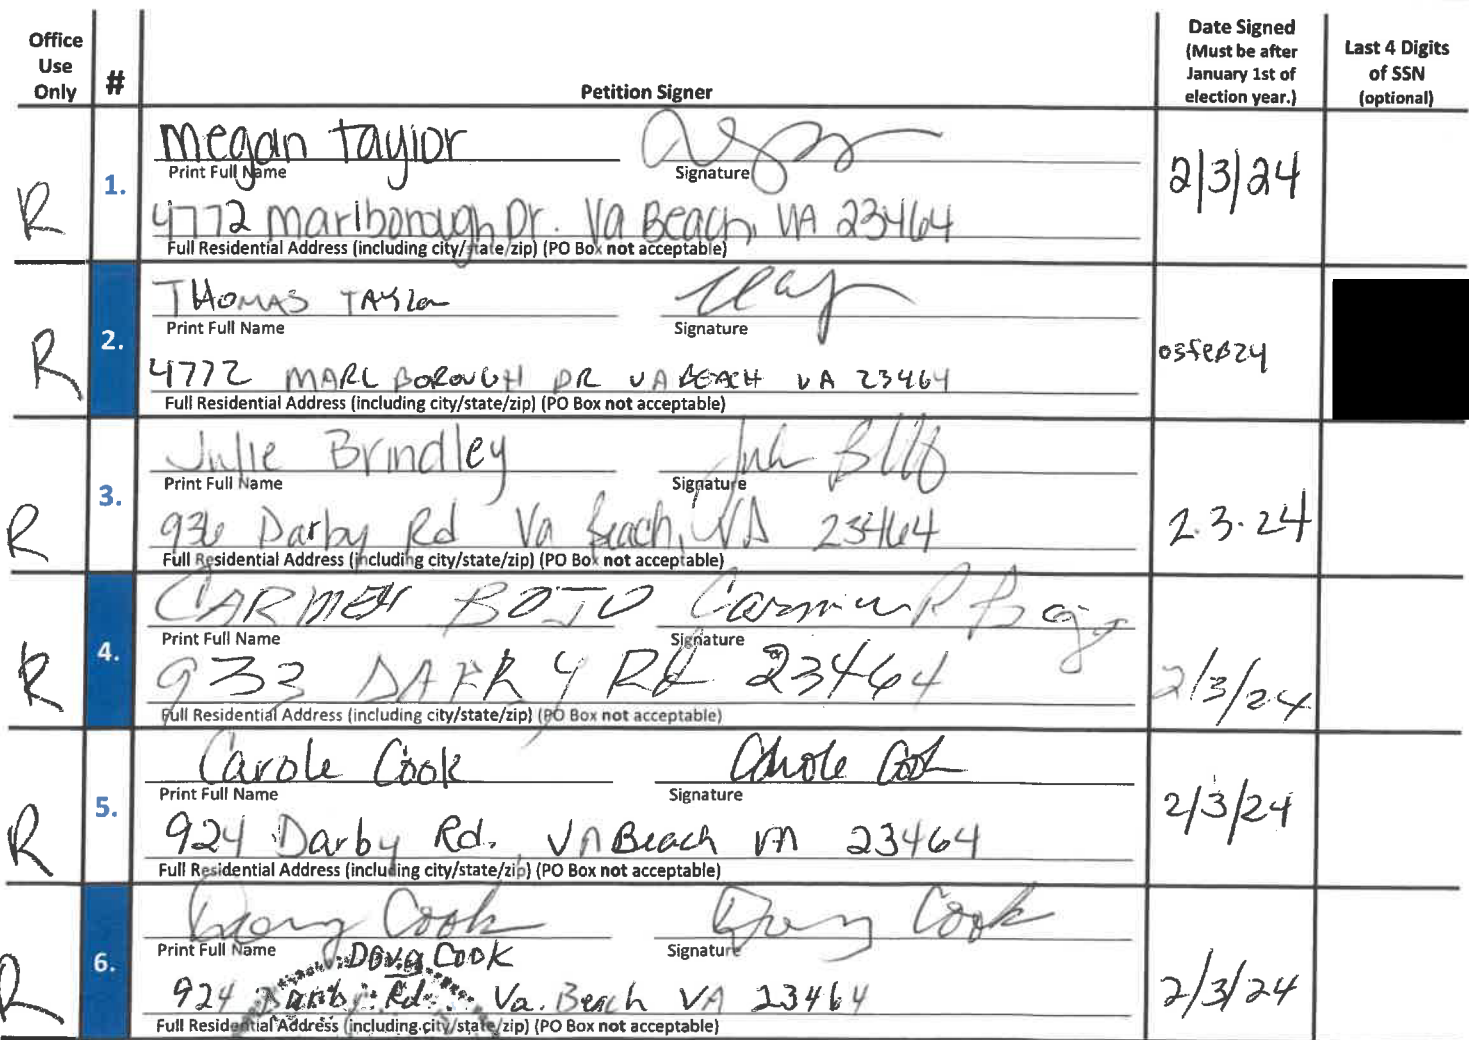 Office Use Only # Petition Signer Date Signed (Must be after January 1st of election year.) Last 4 Digits of SSN (optional)
Megan Taylor
Print Full Name Signature
R 1. 2/3/24
4772 Marlborough Dr. Va Beach, VA 23464
Full Residential Address (including city/state/zip) (PO Box not acceptable)
THOMAS TAYLOR
Print Full Name Signature
R 2. 03FEB24
4772 MARLBOROUGH DR VA BEACH VA 23464
Full Residential Address (including city/state/zip) (PO Box not acceptable)
Julie Brindley
Print Full Name Signature
R 3. 2.3.24
936 Darby Rd Va Beach, VA 23464
Full Residential Address (including city/state/zip) (PO Box not acceptable)
CARMEN BOJO Carmen P
Print Full Name Signature
R 4. 2/3/24
933 DARBY Rd 23464
Full Residential Address (including city/state/zip) (PO Box not acceptable)
Carole Cook Carole Cook
Print Full Name Signature
R 5. 2/3/24
924 Darby Rd. VA Beach VA 23464
Full Residential Address (including city/state/zip) (PO Box not acceptable)
Doug Cook Doug Cook
Print Full Name Signature
Doug Cook
R 6. 2/3/24
924 Darby Rd. Va. Beach VA 23464
Full Residential Address (including city/state/zip) (PO Box not acceptable)